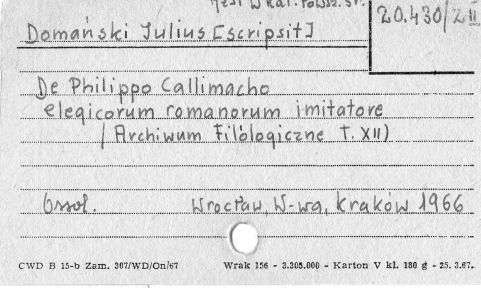 Jest w kat. powsz. st.
20.430/Z II
Domański Julius [scripsit]
De Philippo Callimacho
elegicorum romanorum imitatore
(Archiwum Filologiczne T. XII)
Ossol. Wrocław, W-wa, Kraków 1966
CWD B 15-b Zam. 307/WD/On/67 Wrak 156 - 3.305.000 - Karton V kl. 180 g - 25. 3.67.